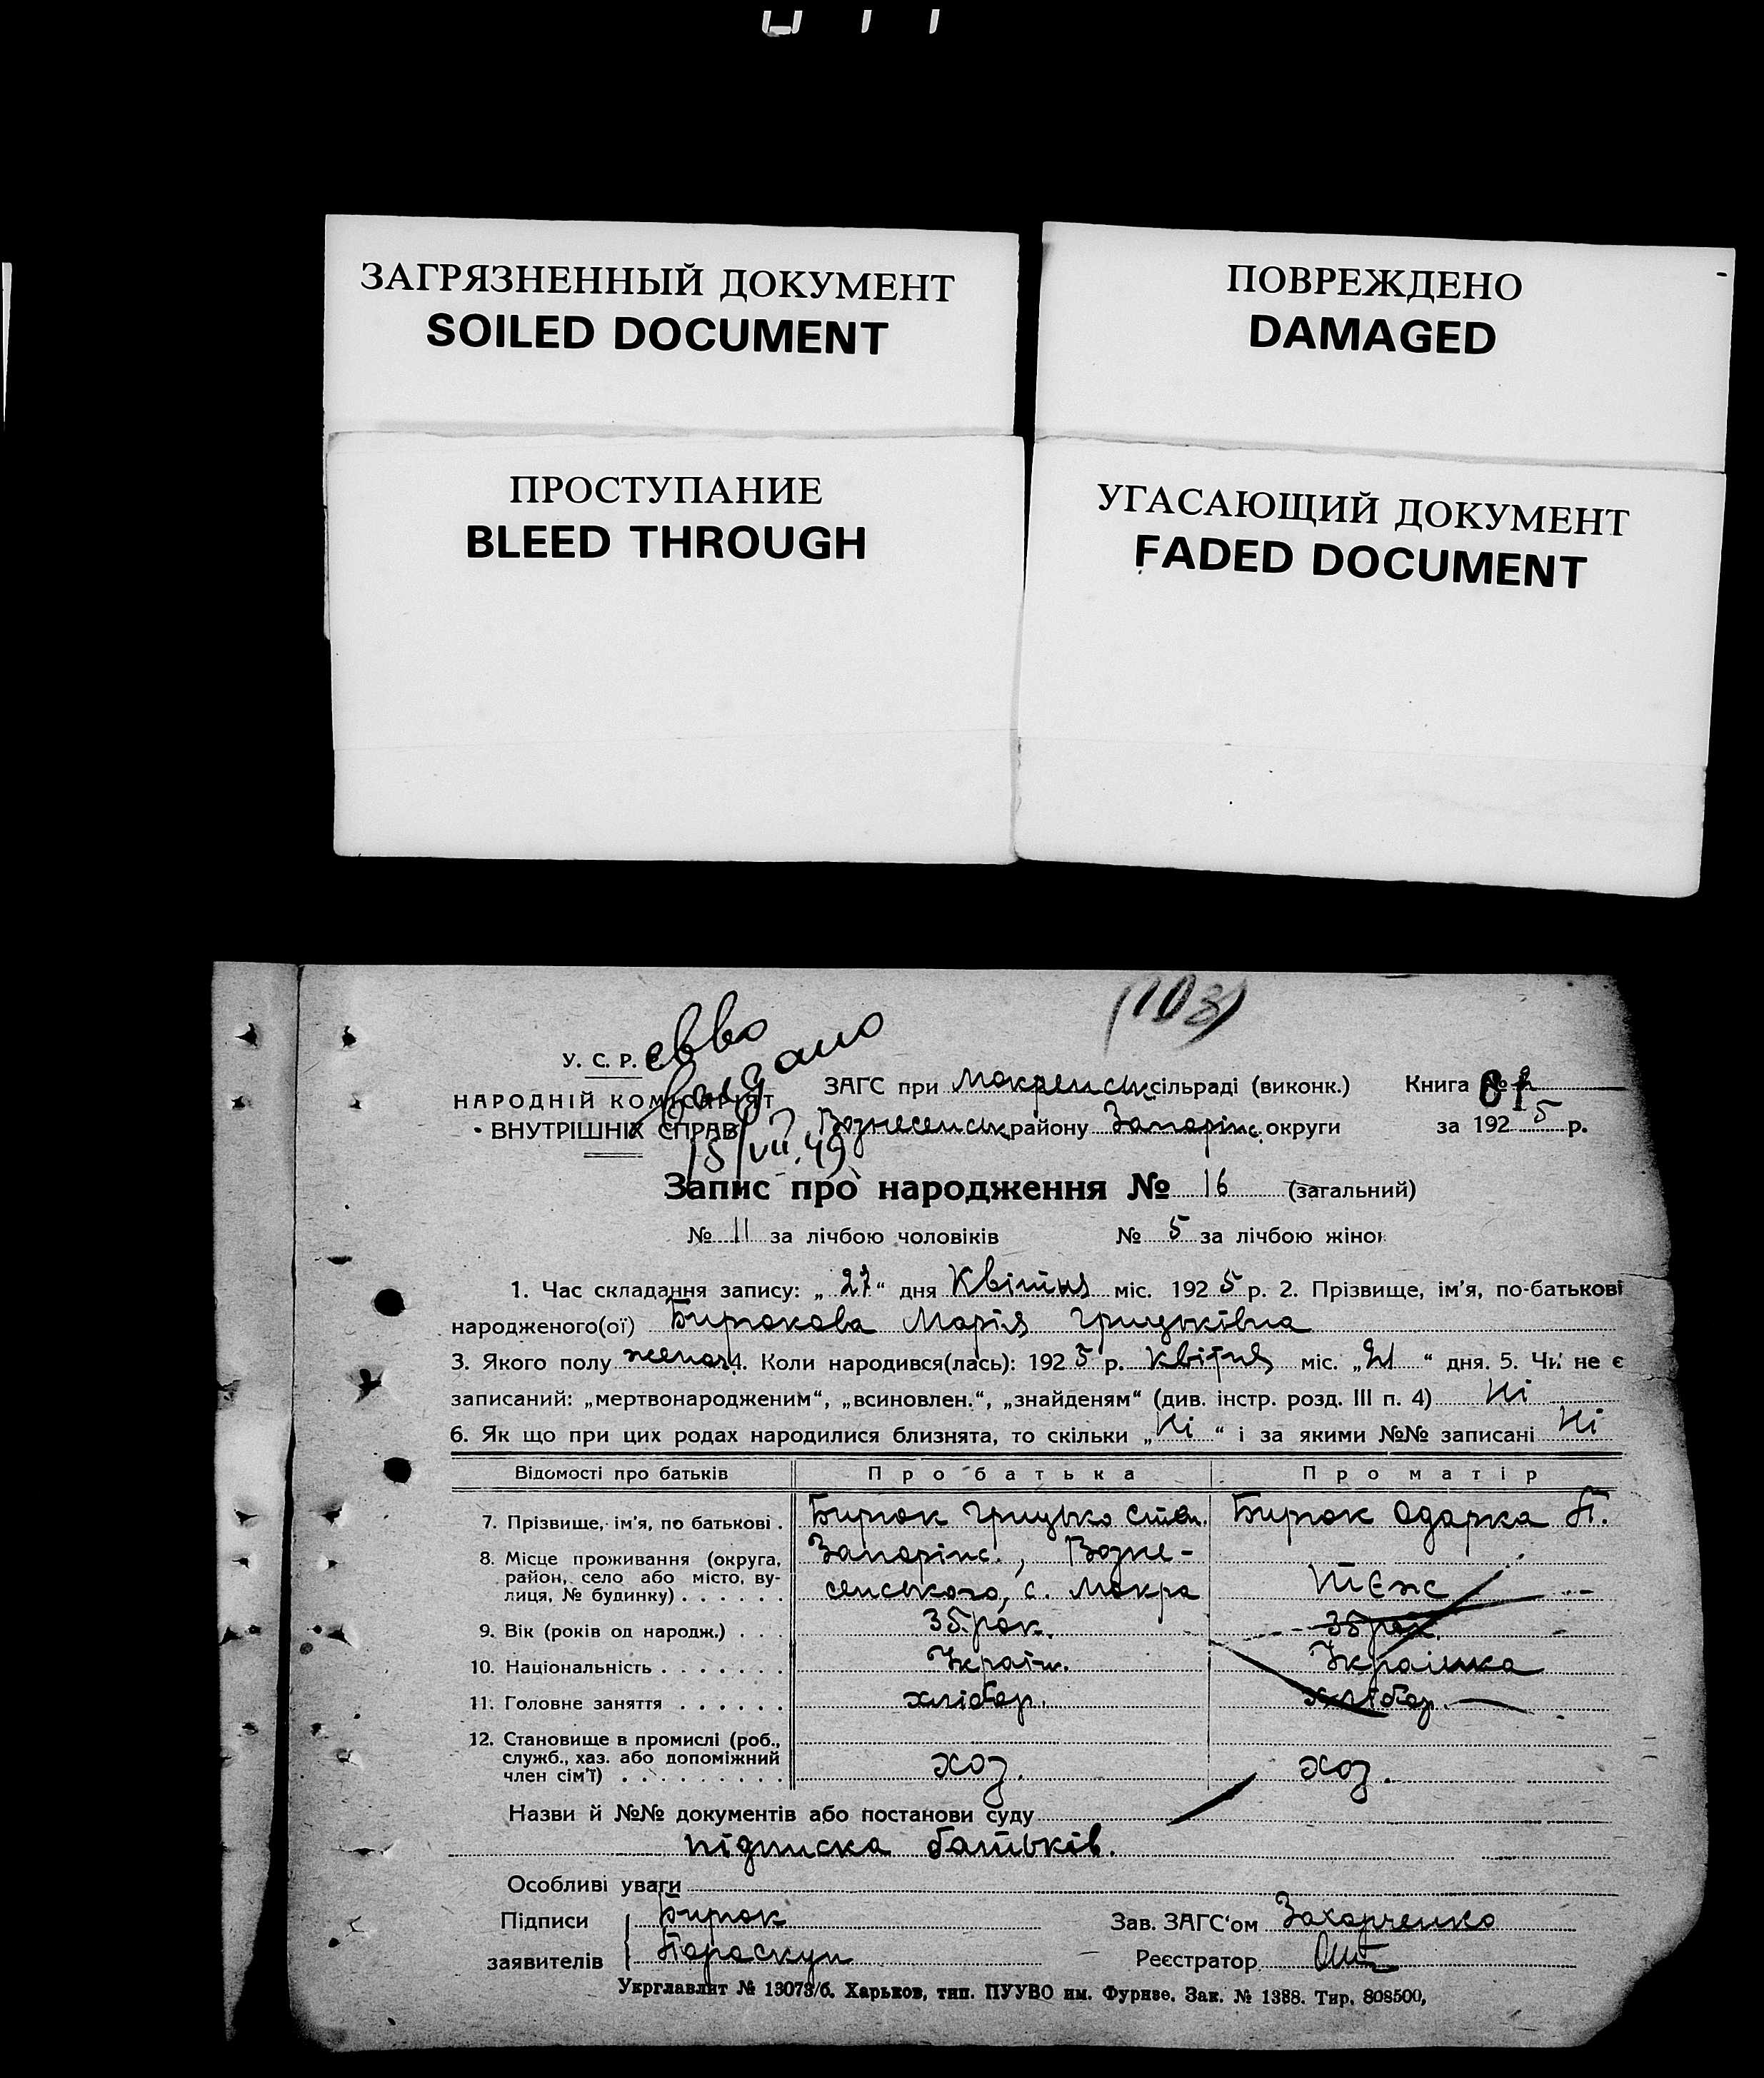 ЗАГРЯЗНЕННЫЙ ДОКУМЕНТ
SOILED DOCUMENT
ПОВРЕЖДЕНО
DAMAGED
ПРОСТУПАНИЕ
BLEED THROUGH
УГАСАЮЩИЙ ДОКУМЕНТ
FADED DOCUMENT
(103)
У. С. Р. Р.
НАРОДНІЙ КОМІСАРІЯТ
ВНУТРІШНІХ СПРАВ
15/VII.49
ЗАГС при Мокрянськ сільраді (виконк.) Книга №
Вознесенськ району Запоріжс. округи за 1925 р.
Запис про народження № 16 (загальний)
№ 11 за лічбою чоловіків № 5 за лічбою жінок
1. Час складання запису: „27“ дня Квітня міс. 1925 р. 2. Прізвище, ім'я, по-батькові
народженого(ої) Бирюкова Марія Грицьківна
3. Якого полу жіноч 4. Коли народився(лась): 1925 р. Квітня міс. „21“ дня. 5. Чи не є
записаний: „мертвонародженим“, „всиновлен.“, „знайденям“ (див. інстр. розд. III п. 4) Ні
6. Як що при цих родах народилися близнята, то скільки „Ні“ і за якими №№ записані Ні
Відомості про батьків Про батька Про матір
7. Прізвище, ім'я, по батькові . Бирюк Грицько Степ. Бирюк Одарка П.
8. Місце проживання (округа, Запоріжс., Возне-
район, село або місто, ву- сенського, с. Мокра Теж
лиця, № будинку) . . . . . .
9. Вік (років од народж.) . . . 35 рок. 35 рок.
10. Національність . . . . . . . Україн. Українка
11. Головне заняття . . . . . . хлібор. хлібор.
12. Становище в промислі (роб.,
служб., хаз. або допоміжний
член сім'ї) . . . . . . . . . хоз. хоз.
Назви й №№ документів або постанови суду
підписка батьків.
Особливі уваги
Підписи Бирюк Зав. ЗАГС'ом Захарченко
заявителів Реєстратор
Укрглавлит № 13073/б. Харьков, тип. ПУУВО им. Фрунзе. Зак. № 1388. Тир. 808500,